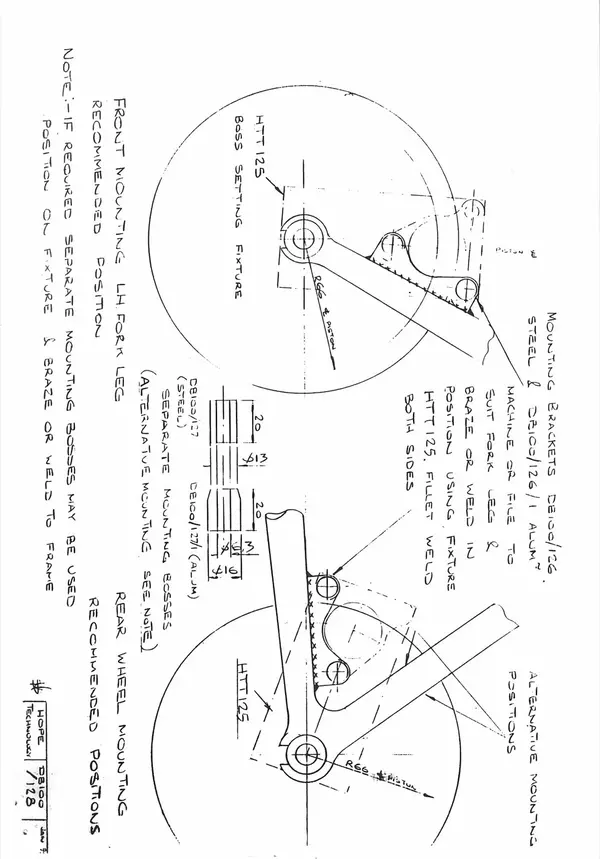 MOUNTING BRACKETS DB100/126.
STEEL & DB100/126/1 ALUM
MACHINE OR FILE TO
SUIT FORK LEG &
BRAZE OR WELD IN
POSITION USING FIXTURE
HTT 125. FILLET WELD
BOTH SIDES
HTT 125
BOSS SETTING FIXTURE
PISTON
R66 PISTON
FRONT MOUNTING LH FORK LEG
RECOMMENDED POSITION
NOTE:- IF REQUIRED SEPARATE MOUNTING BOSSES MAY BE USED
POSITION ON FIXTURE & BRAZE OR WELD TO FRAME
20
20
ϕ13
ϕ6.3
ϕ16
DB100/127
(STEEL)
DB100/127/1 (ALUM)
SEPARATE MOUNTING BOSSES
(ALTERNATIVE MOUNTING SEE NOTE)
ALTERNATIVE MOUNTING
POSITIONS
HTT 125
R66 PISTON
REAR WHEEL MOUNTING
RECOMMENDED POSITIONS
HOPE
TECHNOLOGY
DB100
/128